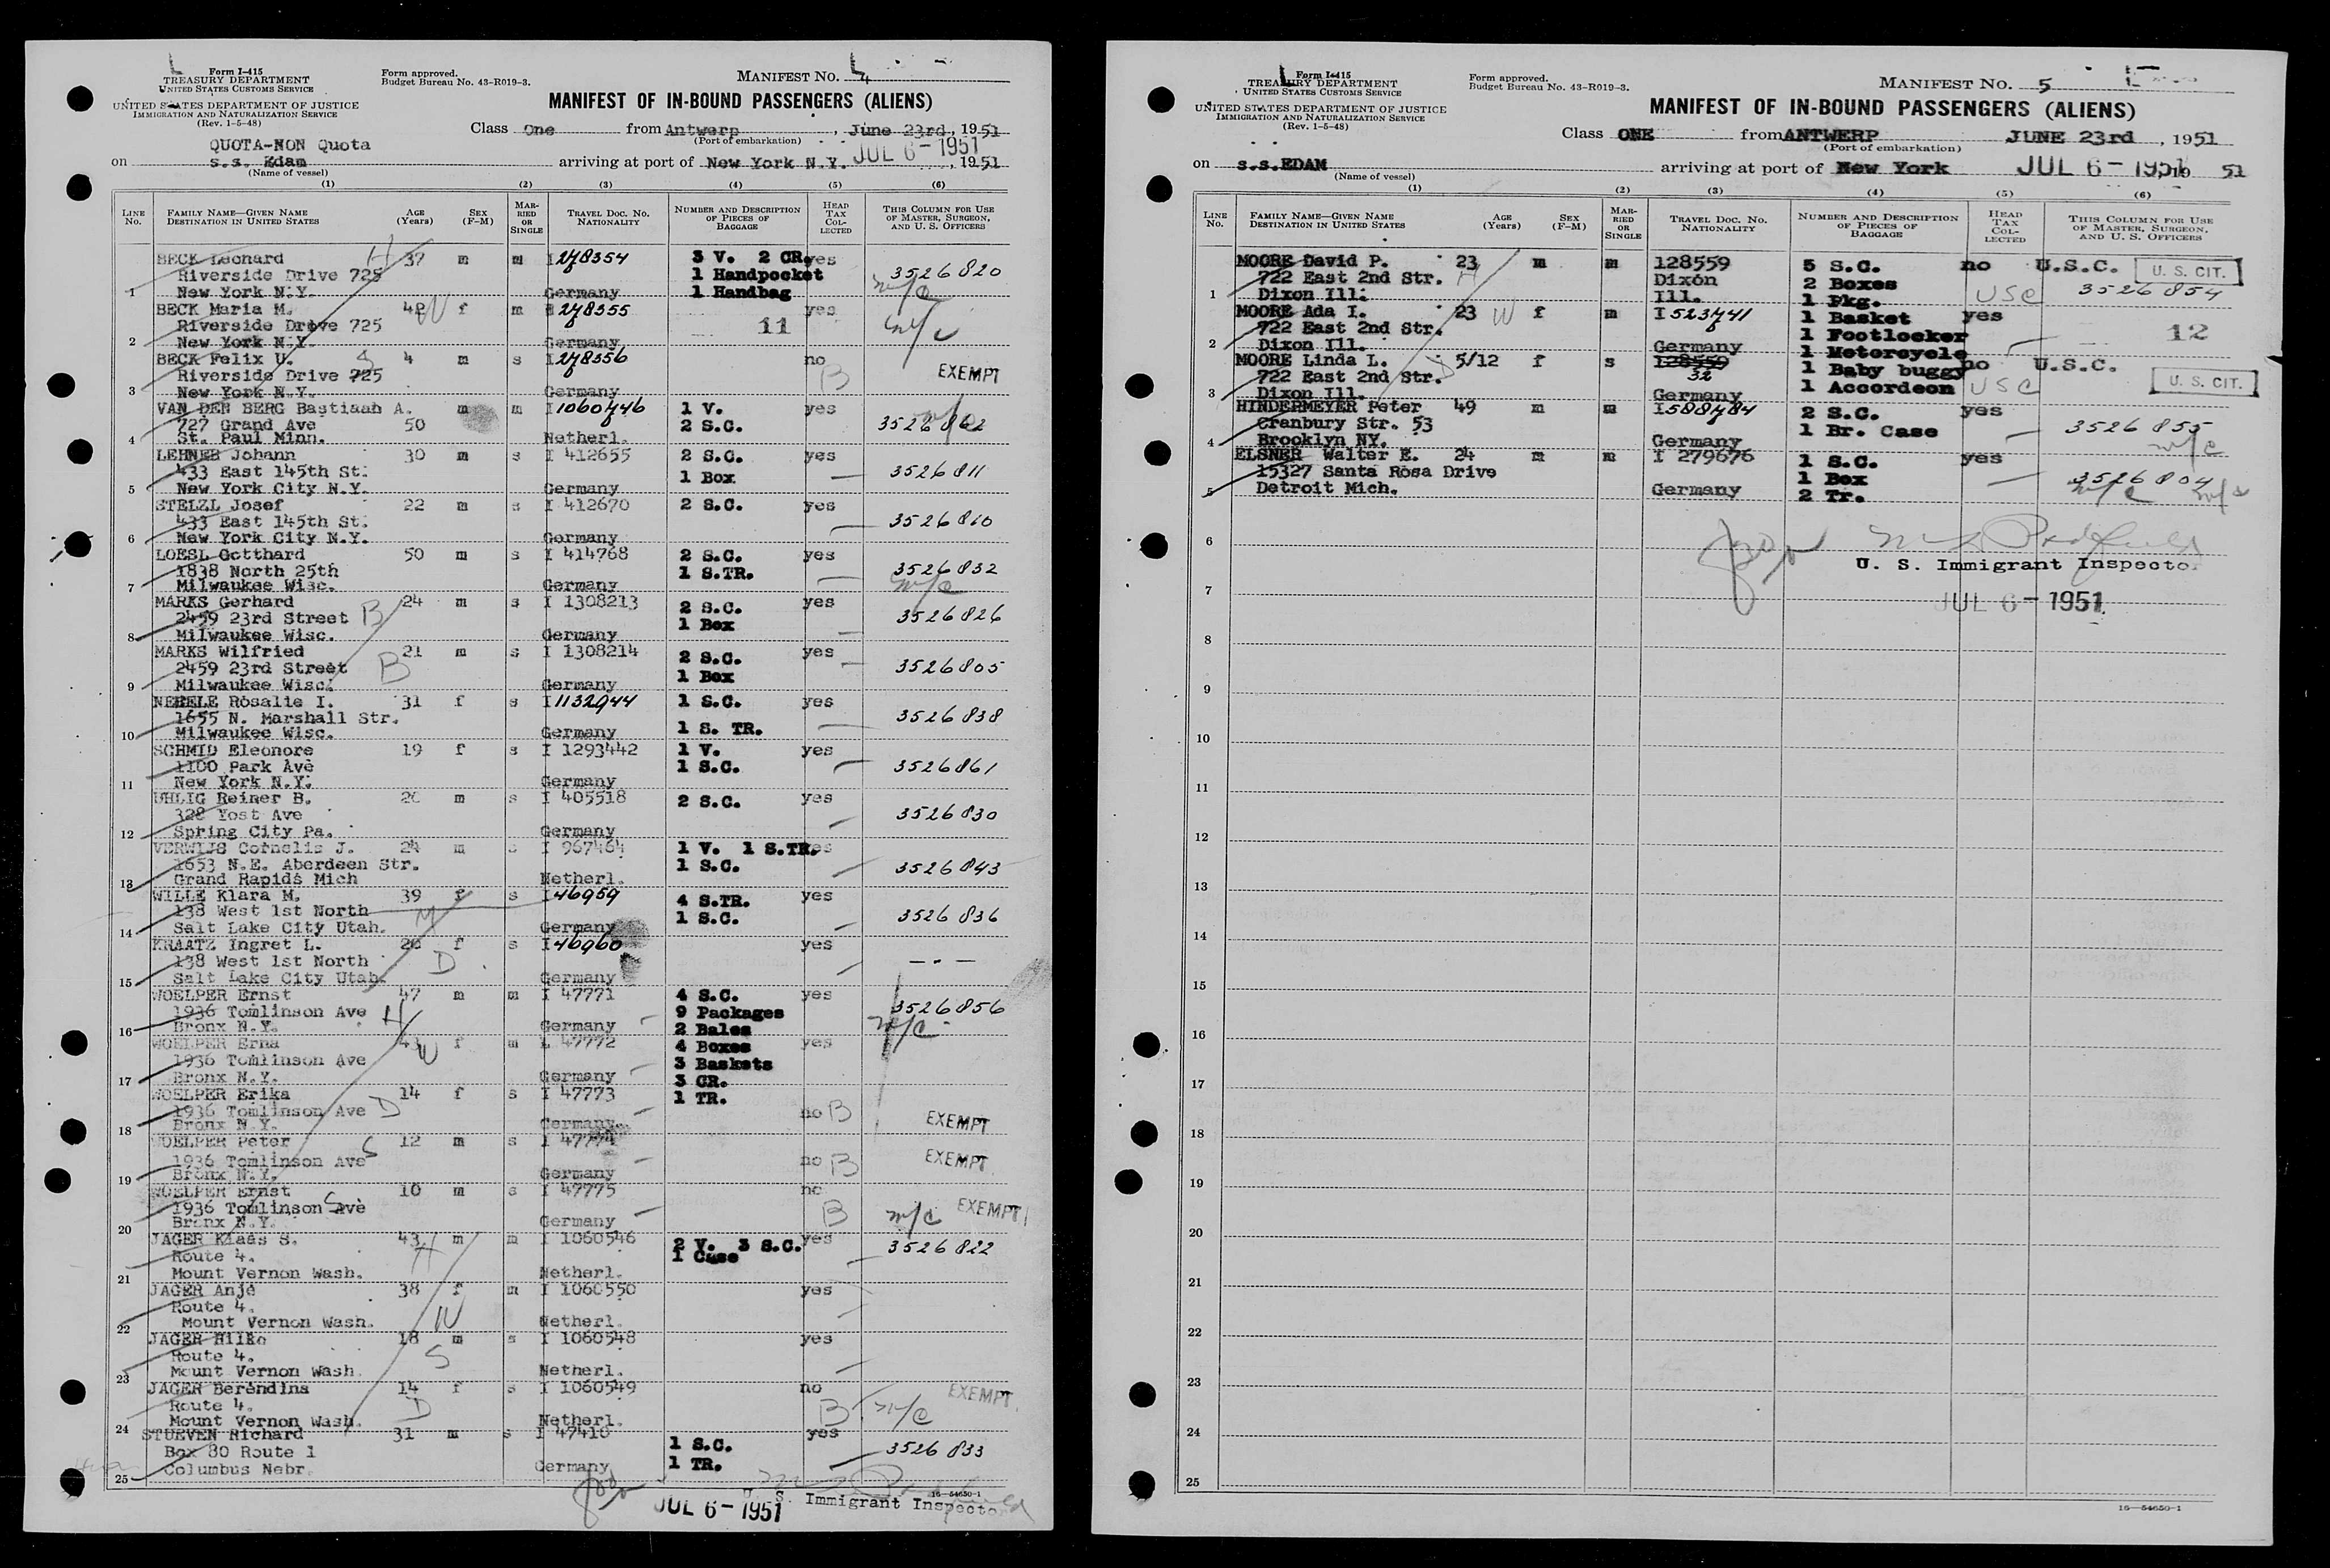 Form I-415
TREASURY DEPARTMENT
UNITED STATES CUSTOMS SERVICE
Form approved.
Budget Bureau No. 43-R019-3.
MANIFEST NO. 4
UNITED STATES DEPARTMENT OF JUSTICE
IMMIGRATION AND NATURALIZATION SERVICE
(Rev. 1-5-48)
MANIFEST OF IN-BOUND PASSENGERS (ALIENS)
Class One from Antwerp, June 23rd, 1951
(Port of embarkation)
QUOTA-NON Quota
on s.s. Edam arriving at port of New York N.Y. JUL 6-1951, 1951
(Name of vessel)
(1) (2) (3) (4) (5) (6)
LINE No. FAMILY NAME—GIVEN NAME DESTINATION IN UNITED STATES AGE (Years) SEX (F-M) MARRIED OR SINGLE TRAVEL DOC. NO. NATIONALITY NUMBER AND DESCRIPTION OF PIECES OF BAGGAGE HEAD TAX COLLECTED THIS COLUMN FOR USE OF MASTER, SURGEON, AND U. S. OFFICERS
BECK Leonard H 37 m m I 278354 3 V. 2 CR. yes
Riverside Drive 725 1 Handpocket 3526820
1 New York N.Y. Germany 1 Handbag m/c
BECK Maria M. 42 W f m I 278355 yes
Riverside Drive 725 11 m/c
2 New York N.Y. Germany
BECK Felix U. S 4 m s I 278356 no
Riverside Drive 725 B EXEMPT
3 New York N.Y. Germany
VAN DEN BERG Bastiaan A. m m I 1060446 1 V. yes
727 Grand Ave 50 2 S.C. 3526862
4 St. Paul Minn. Netherl.
LEHNER Johann 30 m s I 412655 2 S.C. yes
433 East 145th St. 1 Box 3526811
5 New York City N.Y. Germany
STELZL Josef 22 m s I 412670 2 S.C. yes
433 East 145th St. 3526810
6 New York City N.Y. Germany
LOESL Gotthard 50 m s I 414768 2 S.C. yes
1838 North 25th 1 S.TR. 3526832
7 Milwaukee Wisc. Germany m/c
MARKS Gerhard 24 m s I 1308213 2 S.C. yes
2459 23rd Street B 1 Box 3526826
8 Milwaukee Wisc. Germany
MARKS Wilfried 21 m s I 1308214 2 S.C. yes
2459 23rd Street B 1 Box 3526805
9 Milwaukee Wisc. Germany
NEBELE Rosalie I. 31 f s I 1132944 1 S.C. yes
1655 N. Marshall Str. 1 S. TR. 3526838
10 Milwaukee Wisc. Germany
SCHMID Eleonore 19 f s I 1293442 1 V. yes
1100 Park Ave 1 S.C. 3526861
11 New York N.Y. Germany
UHLIG Reiner B. m s I 405518 2 S.C. yes
328 Yost Ave 3526830
12 Spring City Pa. Germany
VERWIJS Cornelis J. 24 m s I 967464 1 V. 1 S.TR. yes
1653 N.E. Aberdeen Str. 1 S.C. 3526843
13 Grand Rapids Mich Netherl.
WILLE Klara M. 39 f s I 46959 4 S.TR. yes
138 West 1st North M 1 S.C. 3526836
14 Salt Lake City Utah. Germany
KRAATZ Ingret L. 20 f s I 46960 yes
138 West 1st North D - - -
15 Salt Lake City Utah. Germany
WOELPER Ernst 47 m m I 47771 4 S.C. yes
1936 Tomlinson Ave H 9 Packages 3526856
16 Bronx N.Y. Germany 2 Bales m/c
WOELPER Erna 43 W f m I 47772 4 Boxes yes
1936 Tomlinson Ave 3 Baskets
17 Bronx N.Y. Germany 3 CR.
WOELPER Erika 14 f s I 47773 1 TR.
1936 Tomlinson Ave D no B EXEMPT
18 Bronx N.Y. Germany
WOELPER Peter S 12 m s I 47774
1936 Tomlinson Ave no B EXEMPT
19 Bronx N.Y. Germany
WOELPER Ernst 10 m s I 47775 no
1936 Tomlinson Ave S B m/c EXEMPT
20 Bronx N.Y. Germany
JAGER Klaas S. 43 m m I 1060546 2 V. 3 S.C. yes
Route 4. H 1 Case 3526822
21 Mount Vernon Wash. Netherl.
JAGER Anje 38 f m I 1060550 yes
Route 4.
22 Mount Vernon Wash. W Netherl.
JAGER Hilko 18 m s I 1060548 yes
Route 4. S
23 Mount Vernon Wash. Netherl.
JAGER Berendina 14 f s I 1060549 no EXEMPT
Route 4. D B m/c
24 Mount Vernon Wash. Netherl.
STUEVEN Richard 31 m s I 47410 yes
Box 80 Route 1 1 S.C. 3526833
25 Columbus Nebr. Germany 1 TR.
JUL 6-1951 U. S. Immigrant Inspector
16—54650-1
Form I-415
TREASURY DEPARTMENT
UNITED STATES CUSTOMS SERVICE
Form approved.
Budget Bureau No. 43-R019-3.
MANIFEST NO. 5
UNITED STATES DEPARTMENT OF JUSTICE
IMMIGRATION AND NATURALIZATION SERVICE
(Rev. 1-5-48)
MANIFEST OF IN-BOUND PASSENGERS (ALIENS)
Class ONE from ANTWERP JUNE 23rd, 1951
(Port of embarkation)
on s.s.EDAM arriving at port of New York JUL 6-1951, 19 51
(Name of vessel)
(1) (2) (3) (4) (5) (6)
LINE No. FAMILY NAME—GIVEN NAME DESTINATION IN UNITED STATES AGE (Years) SEX (F-M) MARRIED OR SINGLE TRAVEL DOC. NO. NATIONALITY NUMBER AND DESCRIPTION OF PIECES OF BAGGAGE HEAD TAX COLLECTED THIS COLUMN FOR USE OF MASTER, SURGEON, AND U. S. OFFICERS
MOORE David P. 23 m m 128559 5 S.C. no U.S.C. U. S. CIT.
722 East 2nd Str. H Dixon 2 Boxes
1 Dixon Ill. Ill. 1 Pkg. USC 3526854
MOORE Ada I. 23 W f m I 523741 1 Basket yes
722 East 2nd Str. 1 Footlocker 12
2 Dixon Ill. Germany 1 Motorcycle
MOORE Linda L. 5/12 f s 128559 1 Baby buggy no U.S.C.
722 East 2nd Str. D 32 1 Accordeon USC U. S. CIT.
3 Dixon Ill. Germany
HINDERMEYER Peter 49 m m I 588484 2 S.C. yes
Cranbury Str. 53 1 Br. Case 3526855
4 Brooklyn NY. Germany m/c
ELSNER Walter E. 24 m m I 279676 1 S.C. yes
15327 Santa Rosa Drive 1 Box 3526804
5 Detroit Mich. Germany 2 Tr. m/c m/c
6
U. S. Immigrant Inspector
7
JUL 6-1951
8
9
10
11
12
13
14
15
16
17
18
19
20
21
22
23
24
25
16—54650-1